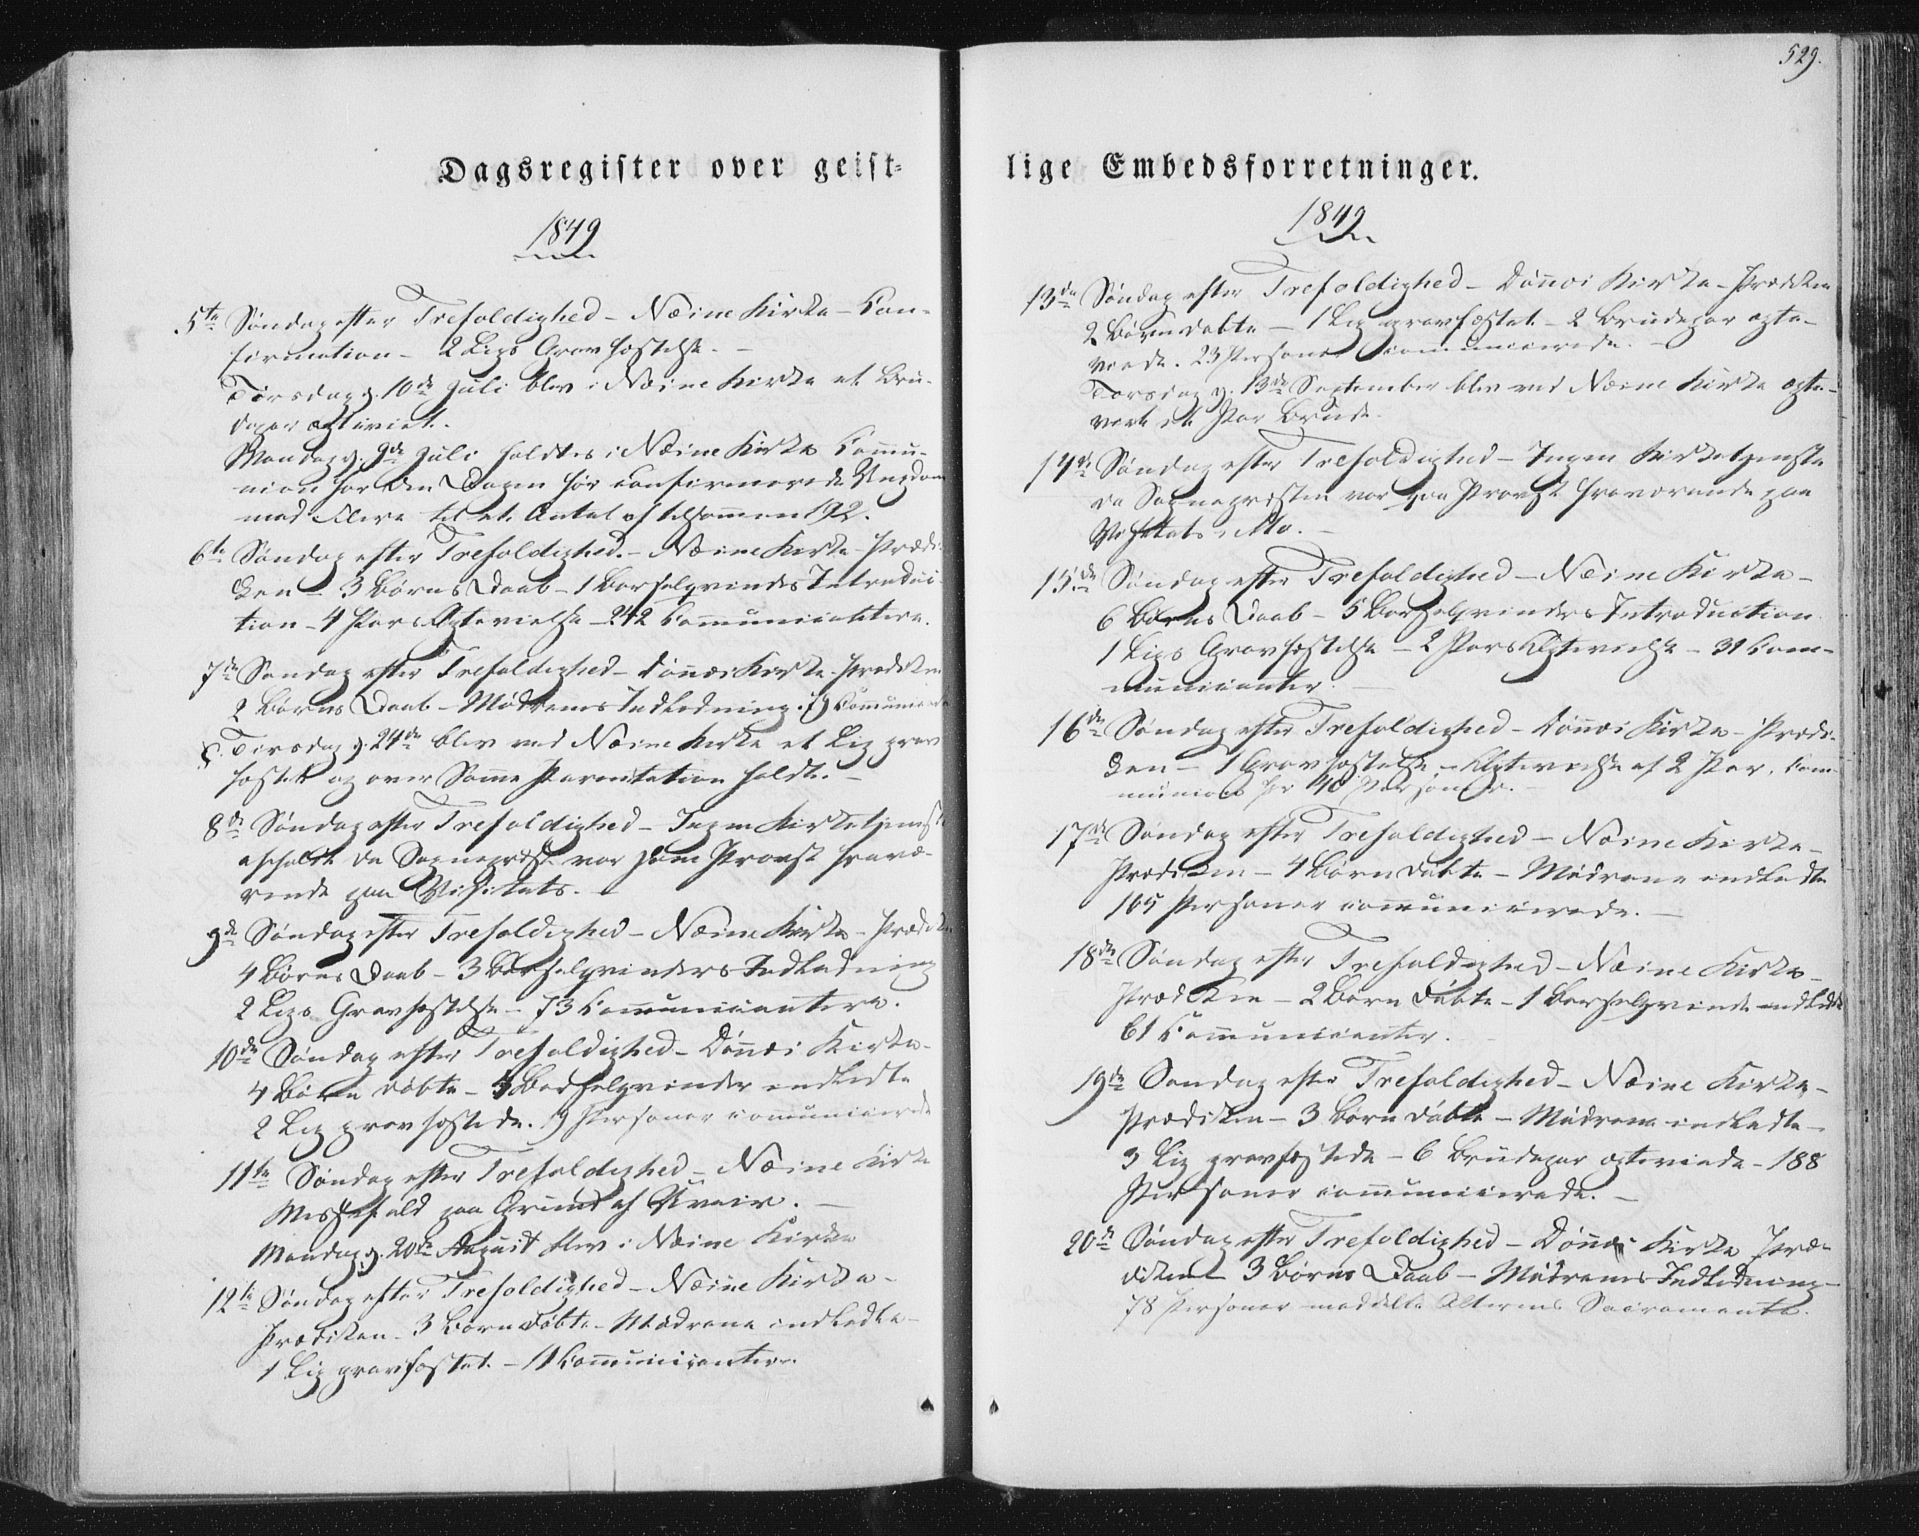 529.
Dagsregister over geist-
1849
5te Søndag efter Trefoldighed – Næsne Kirke – Con-
firmation – 2 Ligs Gravfæstelse. –
Tirsdag d. 10de Juli blev i Næsne Kirke et Bru-
depar ægteviet.
Mandag d. 9de Juli holdtes i Næsne Kirke Commu-
nion for den Dagen før confirmerede Ungdom
med Flere til et Antal af tilsammen 192.
6te Søndag efter Trefoldighed. – Næsne Kirke – Prædi-
ken – 3 Børns Daab – 1 Barselqvindes Introduc-
tion – 4 Pars Ægtevielse – 242 Communicantere.
7de Søndag efter Trefoldighed – Dønnæs Kirke – Prædiken
2 Børns Daab – Mødrenes Indledning. 79 Communicante
Tirsdag d. 24de blev ved Næsne Kirke et Lig grav-
fæstet og over Samme Parentation holdt. –
8de Søndag efter Trefoldighed – Ingen Kirketjeneste
afholdt da Sognepræst. var som Provst fravæ-
rende paa Visitats. –
9de Søndag efter Trefoldighed – Næsne Kirke – Prædiken
4 Børns Daab – 3 Barselqvinders Indledning
2 Ligs Gravfæstelse – 73 Communicantere.
10de Søndag efter Trefoldighed – Dønnæs Kirke –
4 Børn døbte – 3 Barselqvinder indledte
2 Lig gravfæstede. 9 Personer communicerede
11te Søndag efter Trefoldighed – Næsne Kirke
Messefald paa Grund af Uveir. –
Mandag d. 20de August blev i Næsne Kirke
12te Søndag efter Trefoldighed – Næsne Kirke –
Prædiken – 3 Børn døbte – Mødrene indledte –
1 Lig gravfæstet. – 11 Communicantere.
lige Embedsforretninger.
1849
13de Søndag efter Trefoldighed – Dønnæs Kirke – Prædiken
2 Børn døbte – 1 Lig gravfæstet – 2 Brudepar ægte-
viede. 23 Personer communicerede. –
Torsdag d. 13de September blev ved Næsne Kirke ægte-
viet et Par Brude.
14de Søndag efter Trefoldighed – Ingen Kirketjeneste
da Sognepræsten var som Provst fraværende paa
Visitats i Mo. –
15de Søndag efter Trefoldighed – Næsne Kirke –
6 Børns Daab – 5 Barselqvinders Introduction
1 Ligs Gravfæstelse – 2 Pars Ægtevielse – 31 Com-
municanter. –
16de Søndag efter Trefoldighed – Dønnæs Kirke – Prædi-
ken – 1 Gravfæstelse – Ægtevielse af 2 Par. Com-
munion for 40 Personer. –
17de Søndag efter Trefoldighed – Næsne Kirke –
Prædiken – 4 Børn døbte – Mødrene indledte
105 Personer communicerede. –
18de Søndag efter Trefoldighed – Næsne Kirke –
Prædiken – 2 Børn døbte – 1 Barselqvinde indledte
61 Communicanter.
19de Søndag efter Trefoldighed – Næsne Kirke –
Prædiken – 3 Børn døbte – Mødrene indledte –
3 Lig gravfæstede – 6 Brudepar ægteviede – 188
Personer communicerede. –
20de Søndag efter Trefoldighed – Dønnæs Kirke Præ-
diken – 3 Børns Daab – Mødrenes Indledning –
78 Personer meddelte Alterens Sacramente.